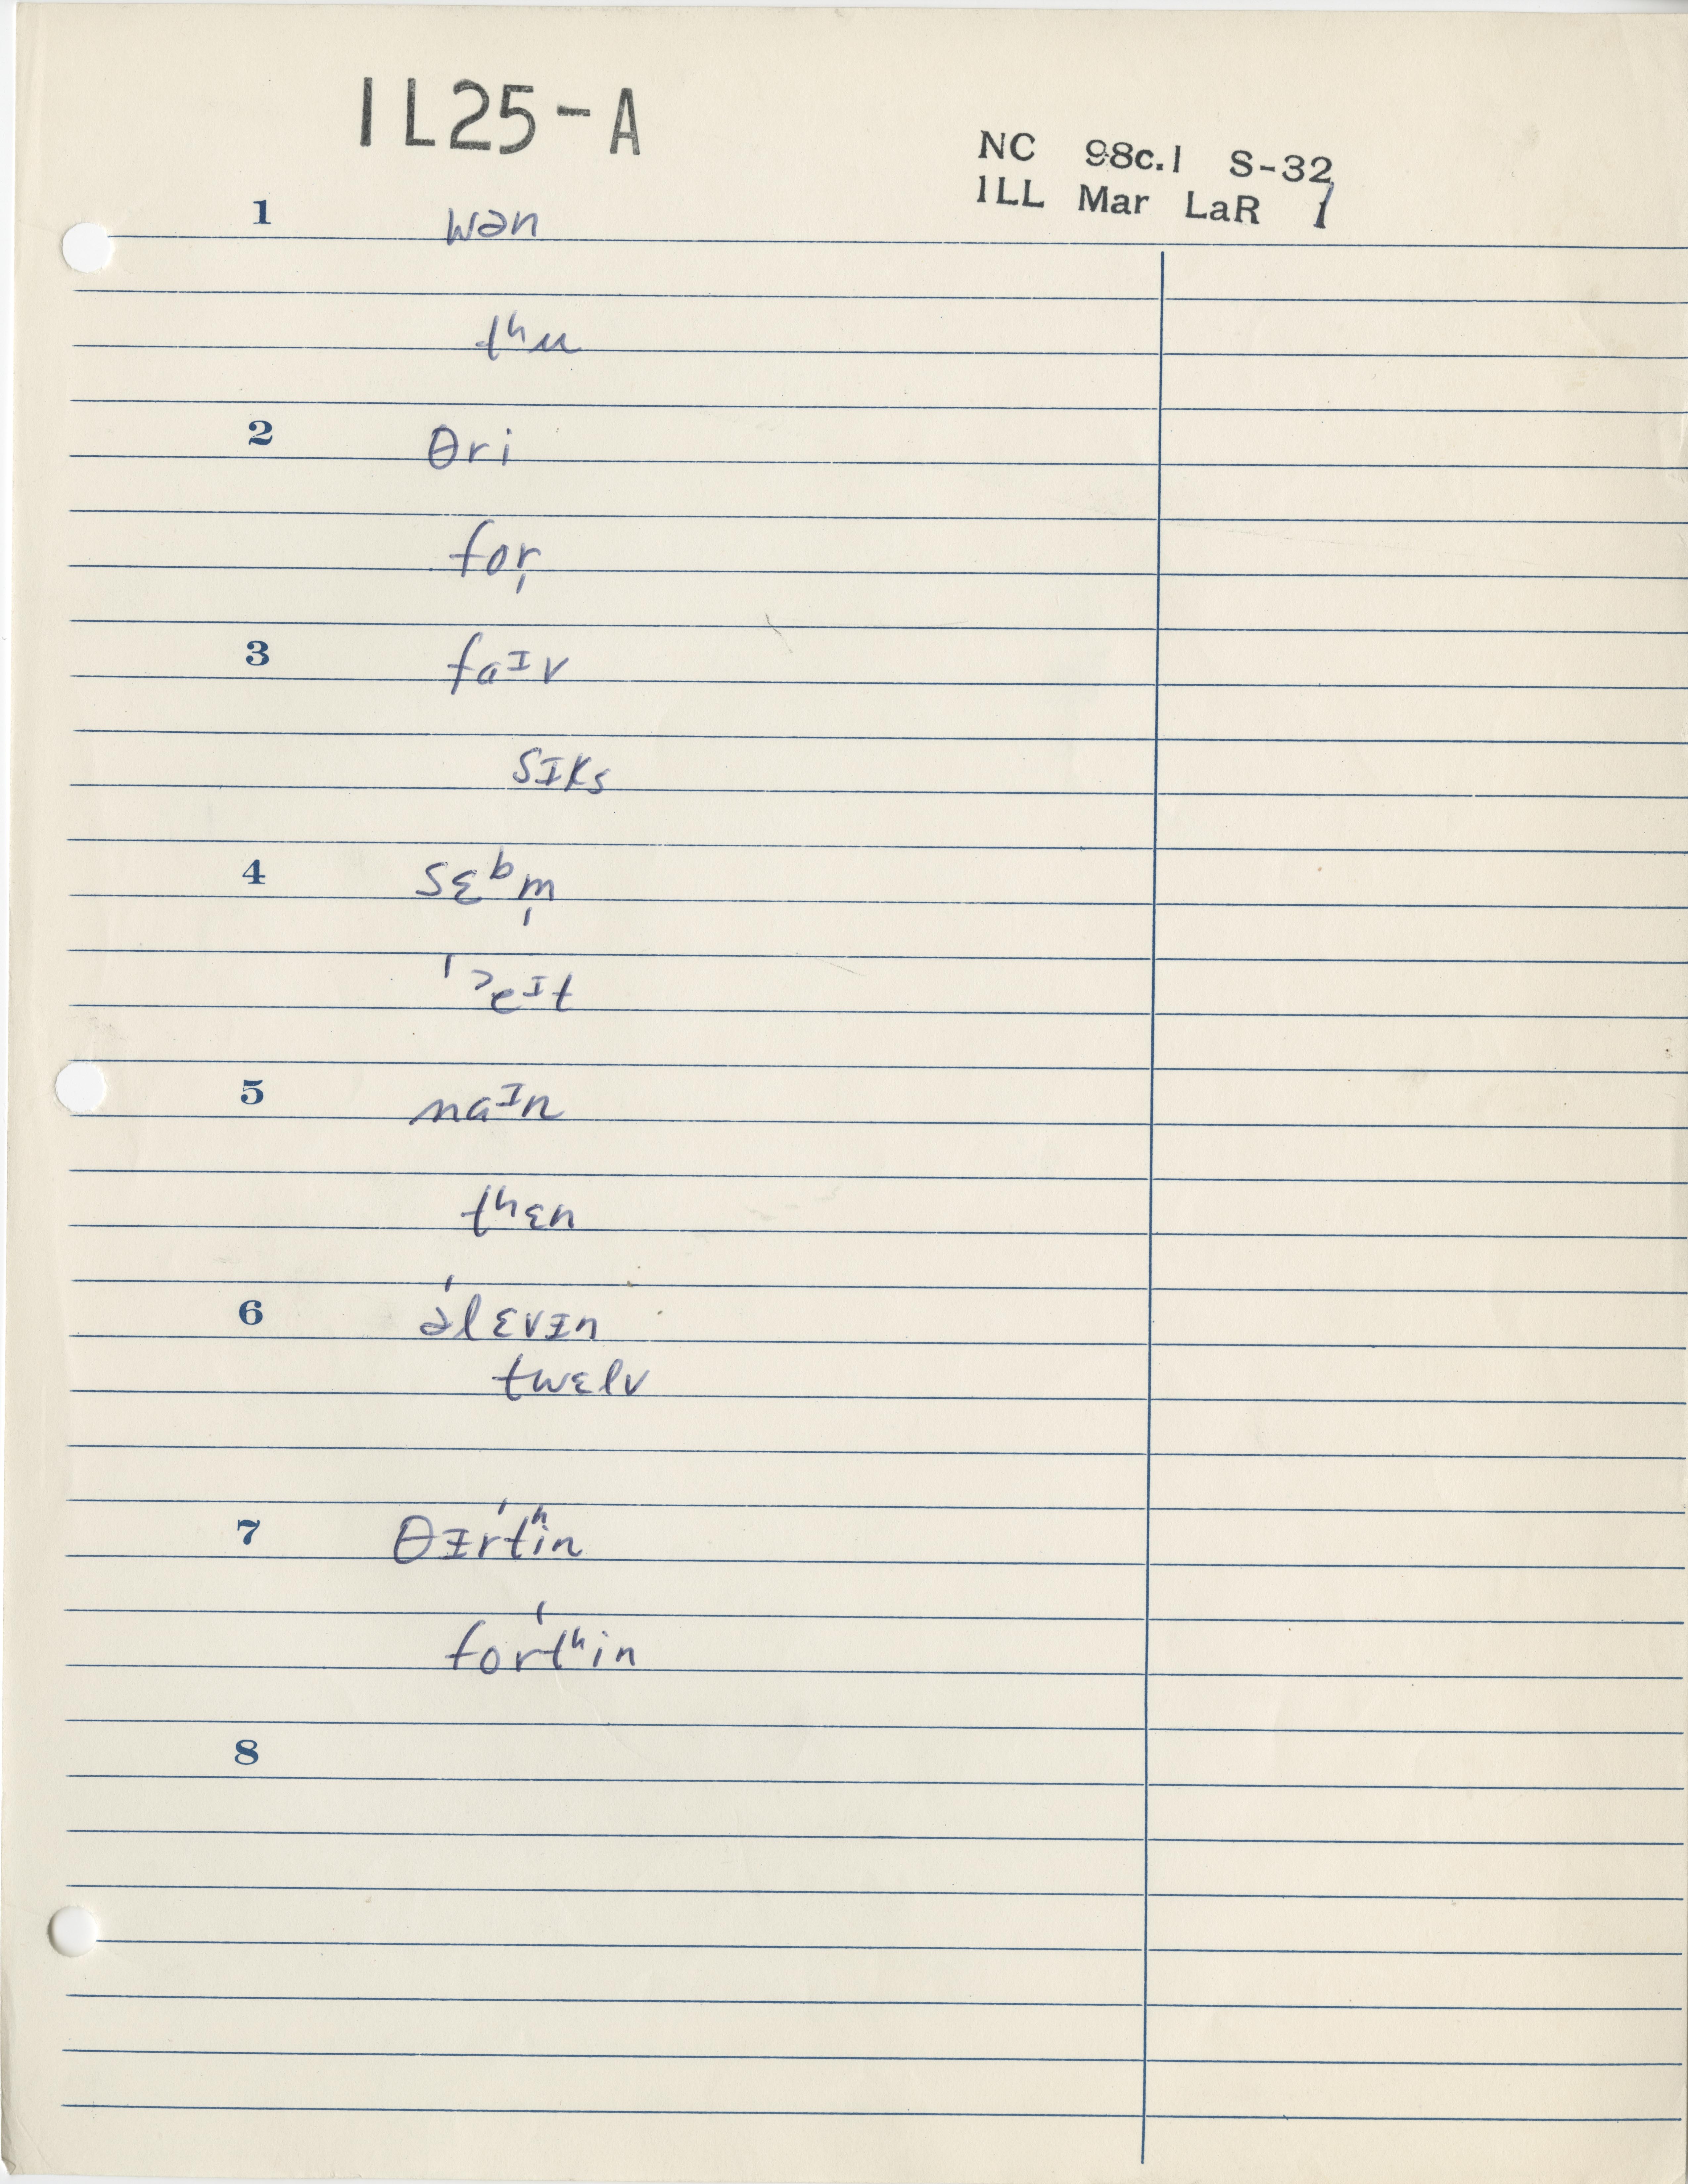 IL25-A
NC 98c.1 S-32
ILL Mar LaR 1
1 wən
tʰu
2 θri
for̩
3 faᴵv
sɪks
4 sɛᵇm̩
ˈˀeᴵt
5 naᴵn
tʰɛn
6 əˈlɛvɪn
twɛlv
7 θɪrˈtʰin
forˈtʰin
8